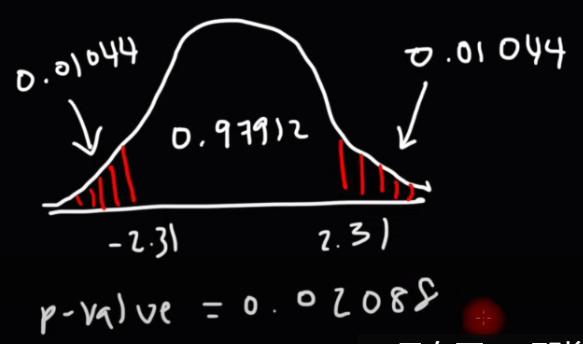 0.01044
0.01044
0.97912
-2.31
2.31
p-value = 0.02088